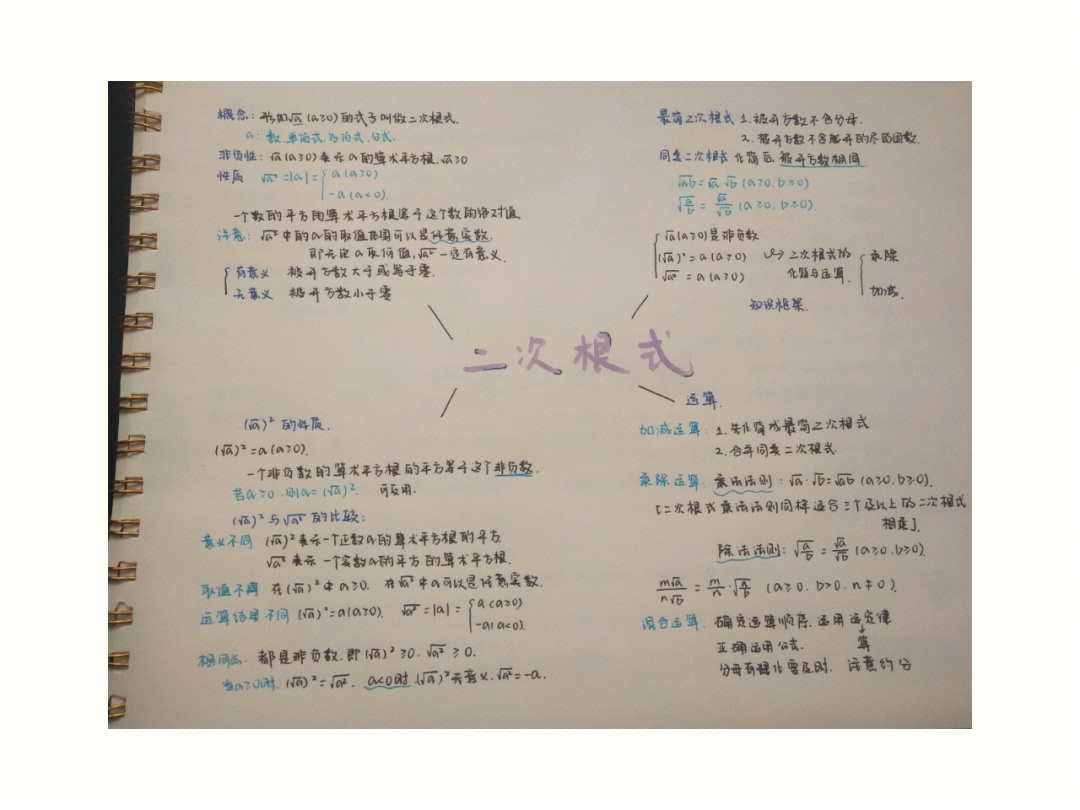 概念：形如√a (a≥0) 的式子叫做二次根式.
a：数,单项式,多项式,分式.
非负性：√a (a≥0) 表示 a 的算术平方根. √a≥0
性质 √a² = |a| = { a (a≥0)
-a (a<0).
一个数的平方的算术平方根等于这个数的绝对值
注意：√a² 中的a的取值范围可以是任意实数.
即无论a取何值, √a² 一定有意义.
有意义 被开方数大于或等于零.
无意义 被开方数小于零
最简二次根式 1. 被开方数不含分母.
2. 被开方数不含能开的尽的因数.
同类二次根式 化简后 被开方数相同
√ab = √a √b (a≥0, b≥0)
√a/b = √a/√b (a≥0, b≥0).
√a (a≥0) 是非负数
(√a)² = a (a≥0) 二次根式的 { 乘除
√a² = a (a≥0) 化简与运算. 加减.
知识框架.
二次根式
(√a)² 的性质.
(√a)² = a (a≥0).
一个非负数的算术平方根的平方等于这个非负数.
若a≥0, 则a = (√a)². 可反用.
(√a)² 与 √a² 的比较：
意义不同 (√a)² 表示一个正数a的算术平方根的平方
√a² 表示 一个实数a的平方的算术平方根.
取值不同 在(√a)² 中 a≥0. 在√a² 中a可以是任意实数.
运算结果不同 (√a)² = a (a≥0). √a² = |a| = { a (a≥0)
-a (a<0).
相同点. 都是非负数. 即 (√a)² ≥0. √a² ≥0.
当a≥0时. (√a)² = √a². a<0时 (√a)² 无意义. √a² = -a.
运算.
加减运算：1. 先化简成最简二次根式
2. 合并同类二次根式.
乘除运算：乘法法则：√a · √b = √ab (a≥0. b≥0).
[二次根式乘法法则同样适合三个及以上的二次根式
相乘].
除法法则：√a/b = √a/√b (a≥0. b≥0).
m√a/n√b = m/n · √a/b (a≥0. b>0. n≠0).
混合运算. 确定运算顺序. 运用运定律
算
正确运用公式.
分母有理化要及时. 注意约分